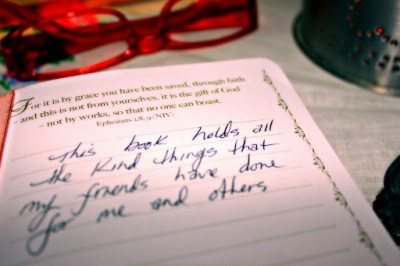 For it is by grace you have been saved, through faith
– and this is not from yourselves, it is the gift of God
– not by works, so that no one can boast.
Ephesians 2:8, 9 (NIV)
This book holds all
the kind things that
my friends have done
for me and others